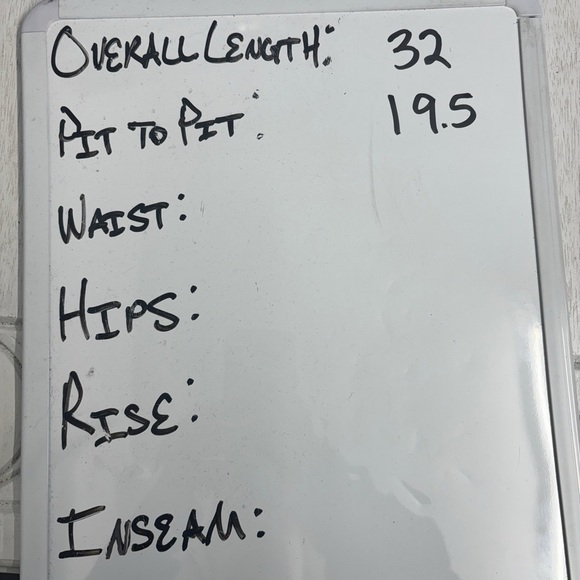 OVERALL LENGTH: 32
PIT TO PIT: 19.5
WAIST:
HIPS:
RISE:
INSEAM: